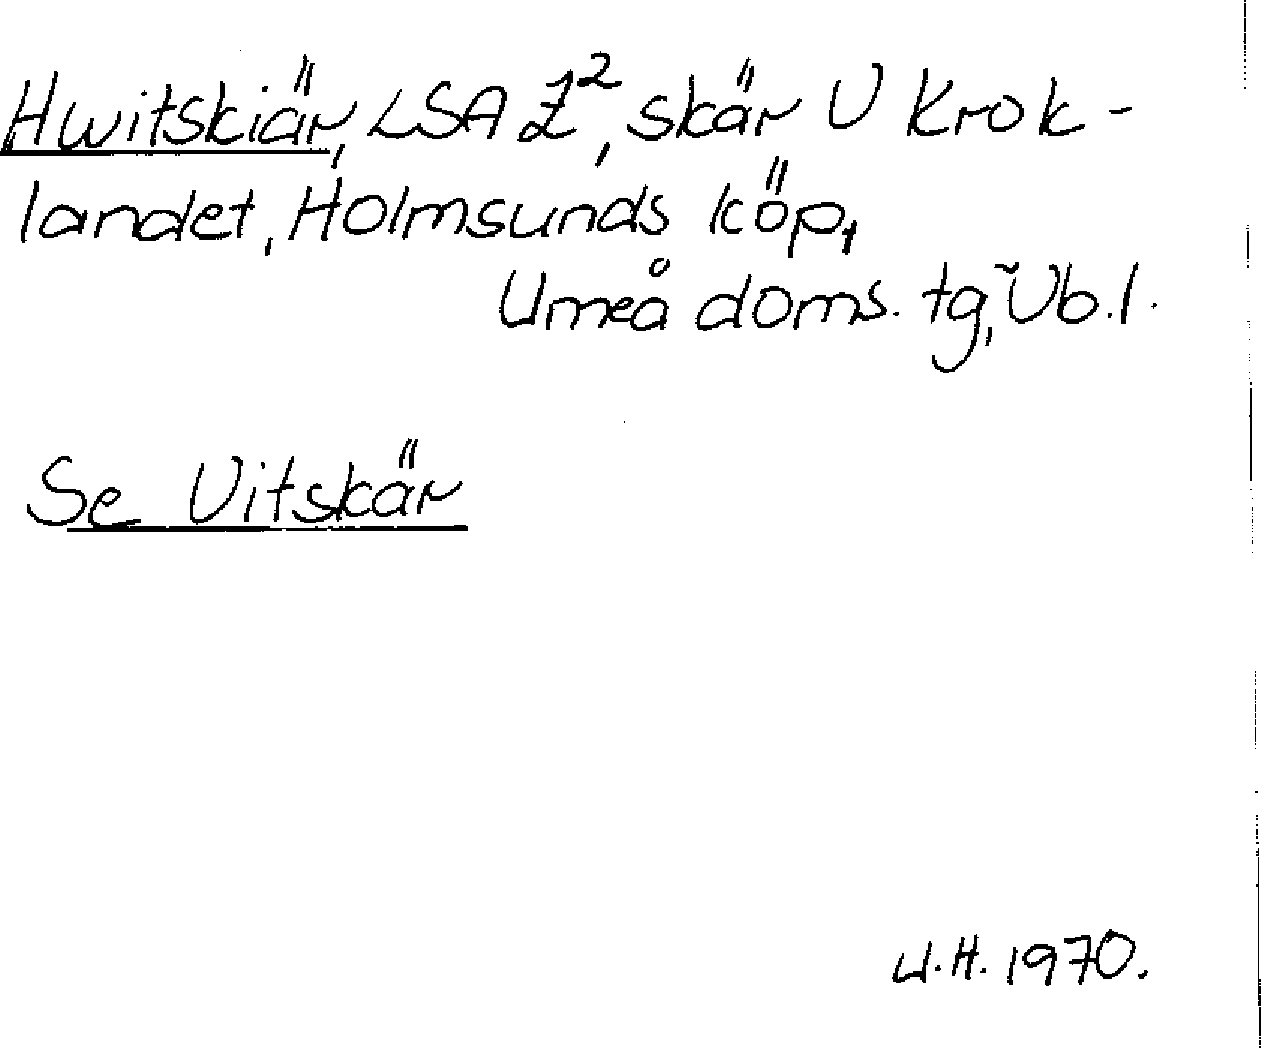 Hwitskiär, LSA Z², skär V Krok-
landet, Holmsunds köp,
Umeå doms. tg, Vb.l.
Se Vitskär
U.H. 1970.